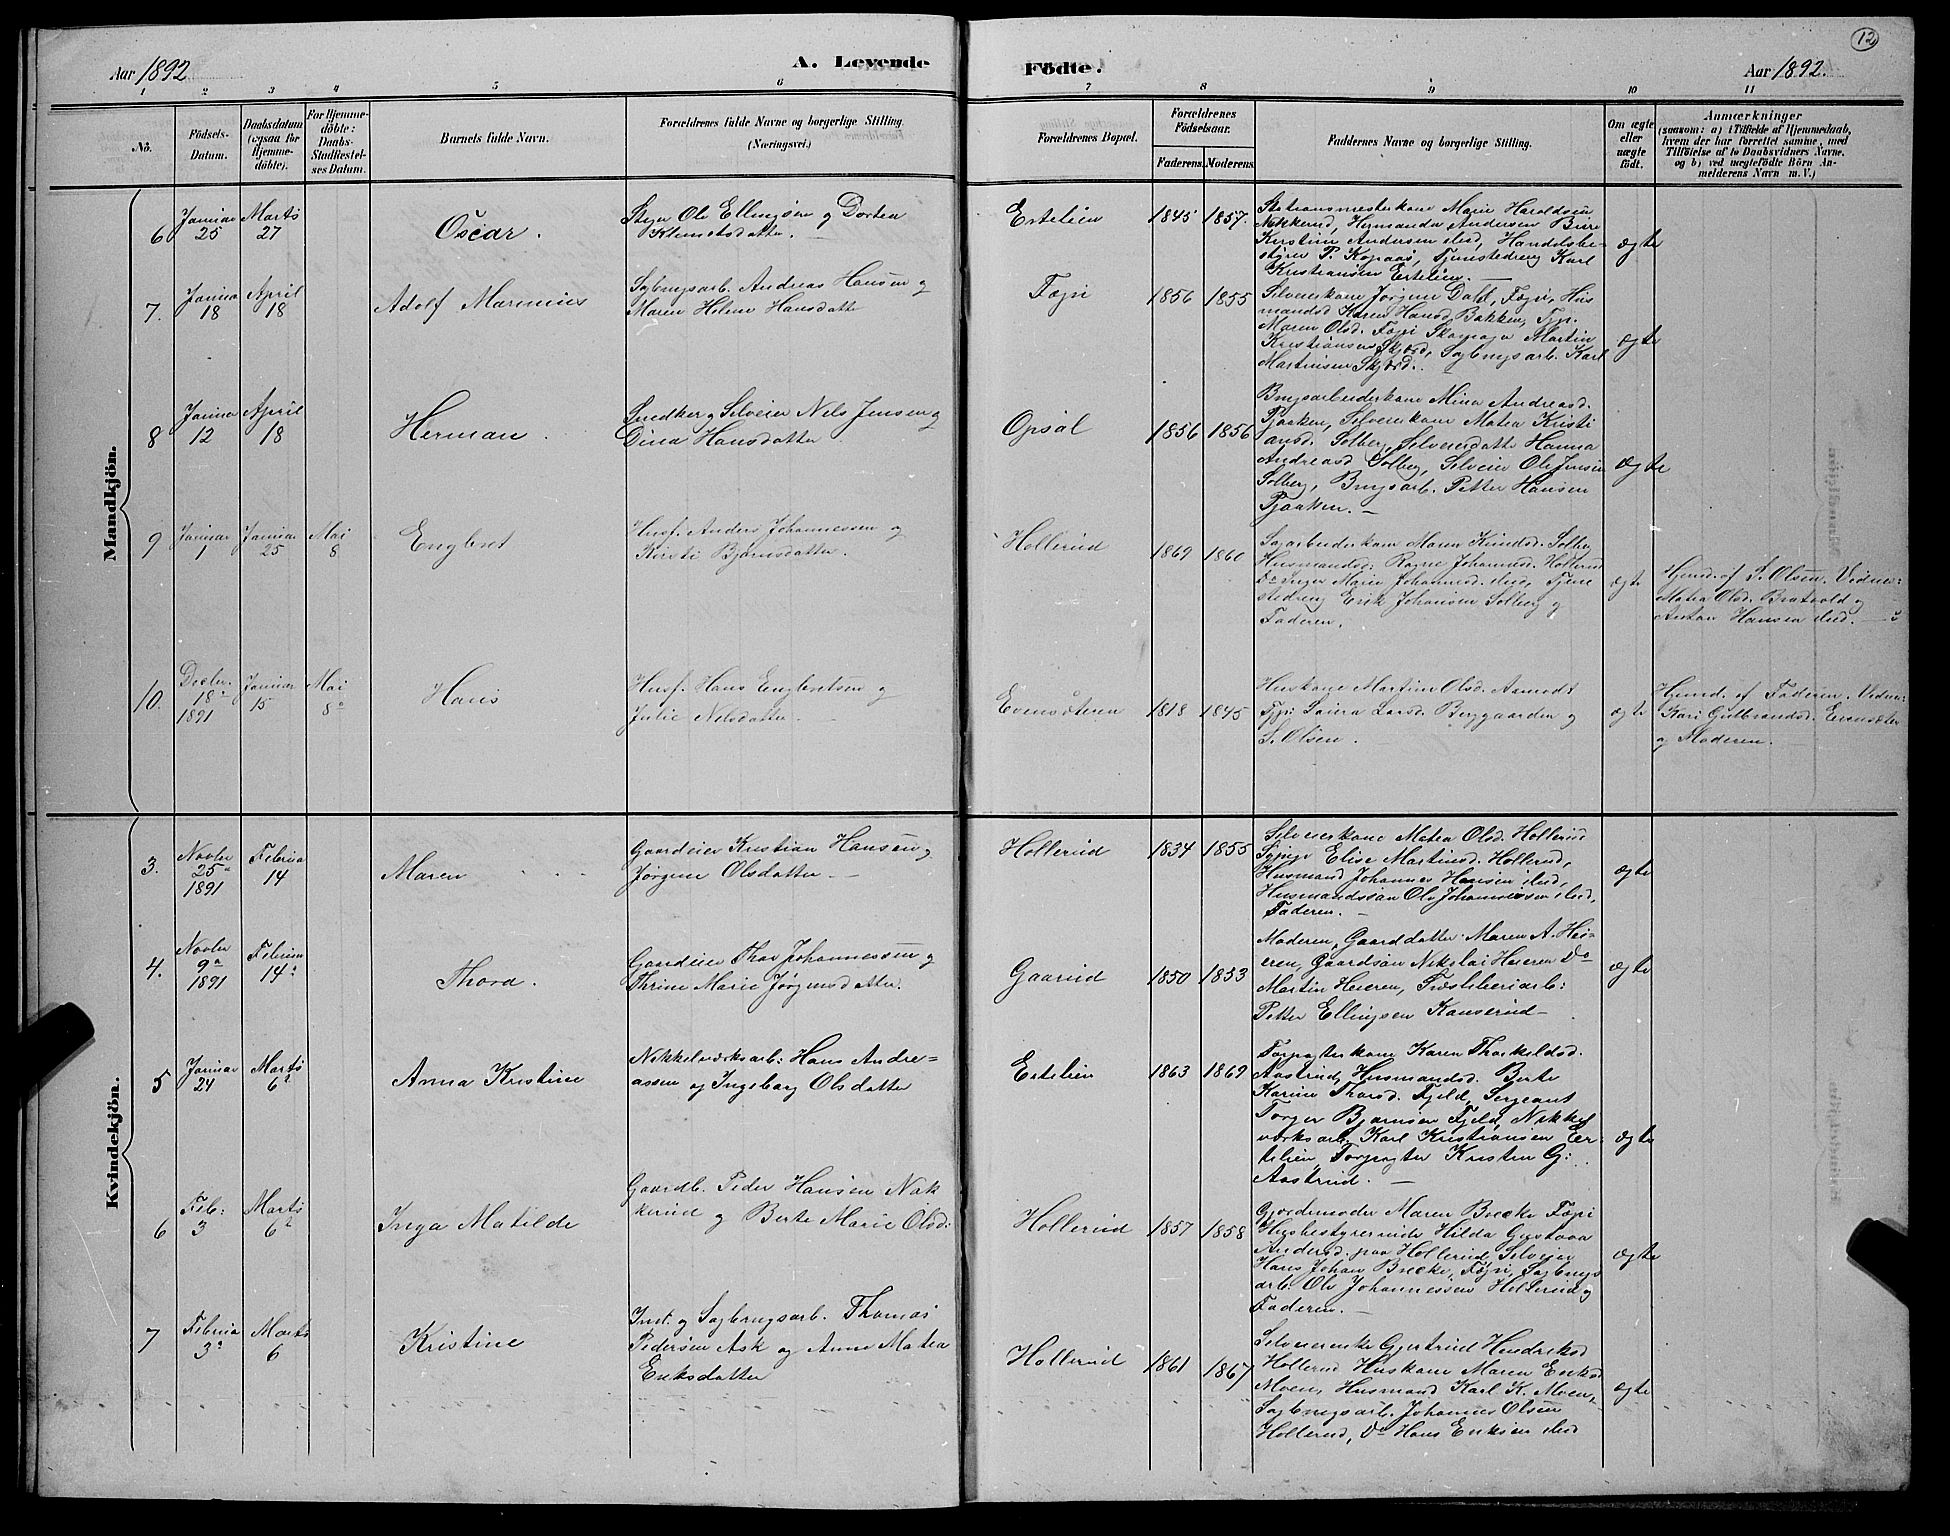 12
Aar 1892
A. Levende Födte.
Aar 1892.
1 2 3 4 5 6 7 8 9 10 11
No.
Födsels-Datum.
Daabsdatum (ogsaa for Hjemme-döbte).
For Hjemme-döbte: Daabs-Stadfæstel-ses Datum.
Barnets fulde Navn.
Forældrenes fulde Navne og borgerlige Stilling. (Næringsvei.)
Forældrenes Bopæl.
Forældrenes Födselsaar.
Faderens. Moderens.
Faddernes Navne og borgerlige Stilling.
Om ægte eller uægte födt.
Anmærkninger
(saasom: a) i Tilfælde af Hjemmedaab,
hvem der har forrettet samme, med
Tilföielse af to Daabsvidners Navne,
og b) ved uægtefödte Börn An-
melderens Navn m. V.)
Mandkjön.
6 Januar 25 Marts 27
Oscar.
Ole Ellingsen og Dorthea
Klemetsdatter.
Ertelien 1845 1857.
Stationsmesterkone Marie Haroldsen
Nekkerud, Hermanda Andersen
Kirstine Andersen ibid, Handelsbe-
styrer P. Kopaas, Tjenestedreng Karl
Kristiansen Ertelien.
ægte
7. Januar 18 April 18
Adolf Marinius
Sagbrugsarb. Andreas Hansen og
Maren Helene Hansdatter
Fægri 1856 1855
Selveierkone Jørgine Dahl, Fægri, Hus
mandsd Karen Hansd. Bakken, Tjp.
Maren Olsd. Fægri Skomager Martin
Kristiansen Skjørd, Sagbrugsarb. Karl
Martinsen Skjørd.
ægte
8 Januar 12 April 18
Herman.
Snedker og Selveier Nels Jensen og
Dina Hansdatter
Opsal 1856 1856
Brugsarbeiderkone Mina Andreasd.
Pjaaken, Selveierkone Matea Kristi
ansd. Solberg, Selveierdatter Hanna
Andreasd Solberg, Selveier Ole Jensen
Solberg, Brugsarb. Petter Hansen
Pjaaken.
ægte
9 Januar 1 Januar 25 Mai 8
Engbret
Husf. Anders Johannessen og
Kirsti Bjørnsdatter.
Hollerud 1869 1860
Maren Knudsd. Solberg
Husmandsd. Ragne Johannesd. Hollerud
Do Inger Marie Johannesd. ibid, Tjene
stedreng Erik Johansen Solberg og
Faderen.
ægte
Hjemd. af S. Olsen. Vidner:
Matea Olsd. Bratvold og
Anton Hansen ibid.
10. Decbr. 18 1891 Januar 15 Mai 8
Hans
Husf. Hans Engbretsen og
Julie Nelsdatter.
Evensæteren 1818 1845
Huskone Martine Olsd. Aamodt
Larsd. Berggaarden og
S. Olsen.
ægte
Hjemd. af Faderen. Vidner:
Kari Gulbrandsd. Evensæter
og Moderen.
Kvindekjön.
3. Novbr 25 1891 Februar 14
Maren
Gaardeier Kristian Hansen og
Jørgine Olsdatter.
Hollerud 1834 1855
Selveierkone Matea Olsd. Hollerud
Elise Martinsd. Hollerud,
Husmand Johannes Hansen ibid,
Husmandssøn Ole Johannessen ibid,
Faderen.
ægte
4. Novbr 9 1891 Februar 14
Thora.
Gaardeier Thor Johannessen og
Thrine Marie Jørgensdatter.
Gaarud 1850 1853
Moderen, Gaarddatter Maren A. Hei-
eren, Gaardsøn Nikolai Heieren Do
Martin Heieren, Træsliberiarb:
Petter Ellingsen Kanserud
ægte
5 Januar 24 Marts 6
Anna Kristine
Nikkelværksarb: Hans Andre=
assen og Ingeborg Olsdatter
Ertelien 1863 1869
Forpagterkone Karen Thorkeldsd.
Aastrud, Husmandsd. Berte
Karine Thorsd. Fjeld, Sergeant
Torger Bjørnsen Fjeld, Nikkel
værksarb. Karl Kristiansen Er-
telien, Forpagter Kristen G:
Aastrud.
ægte
6 Feb: 3 Marts 6
Inga Matilde
Gaardb. Peder Hansen Nak
kerud og Berte Marie Olsd:
Hollerud 1857 1858
Gjordemoder Maren Brecke Fægri
Husbestyrerinde Hilda Gustava
Andersd. paa Hollerud, Selveier
Hans Johan Brecke, Fægri, Sagbrugs
arb. Ole Johannessen Hollerud og
Faderen.
ægte
7 Februar 3 Marts 6
Kristine
Inst. og Sagbrugsarb. Thomas
Pedersen Ask og Anne Matea
Eriksdatter
Hollerud 1861 1867
Selveierenke Gjertrud Hendriksd
Hollerud Huskone Maren Eriksd
Moen, Husmand Karl K. Moen,
Sagbrugsarb. Johannes Olsen
Hollerud, Do Hans Eriksen ibid
ægte